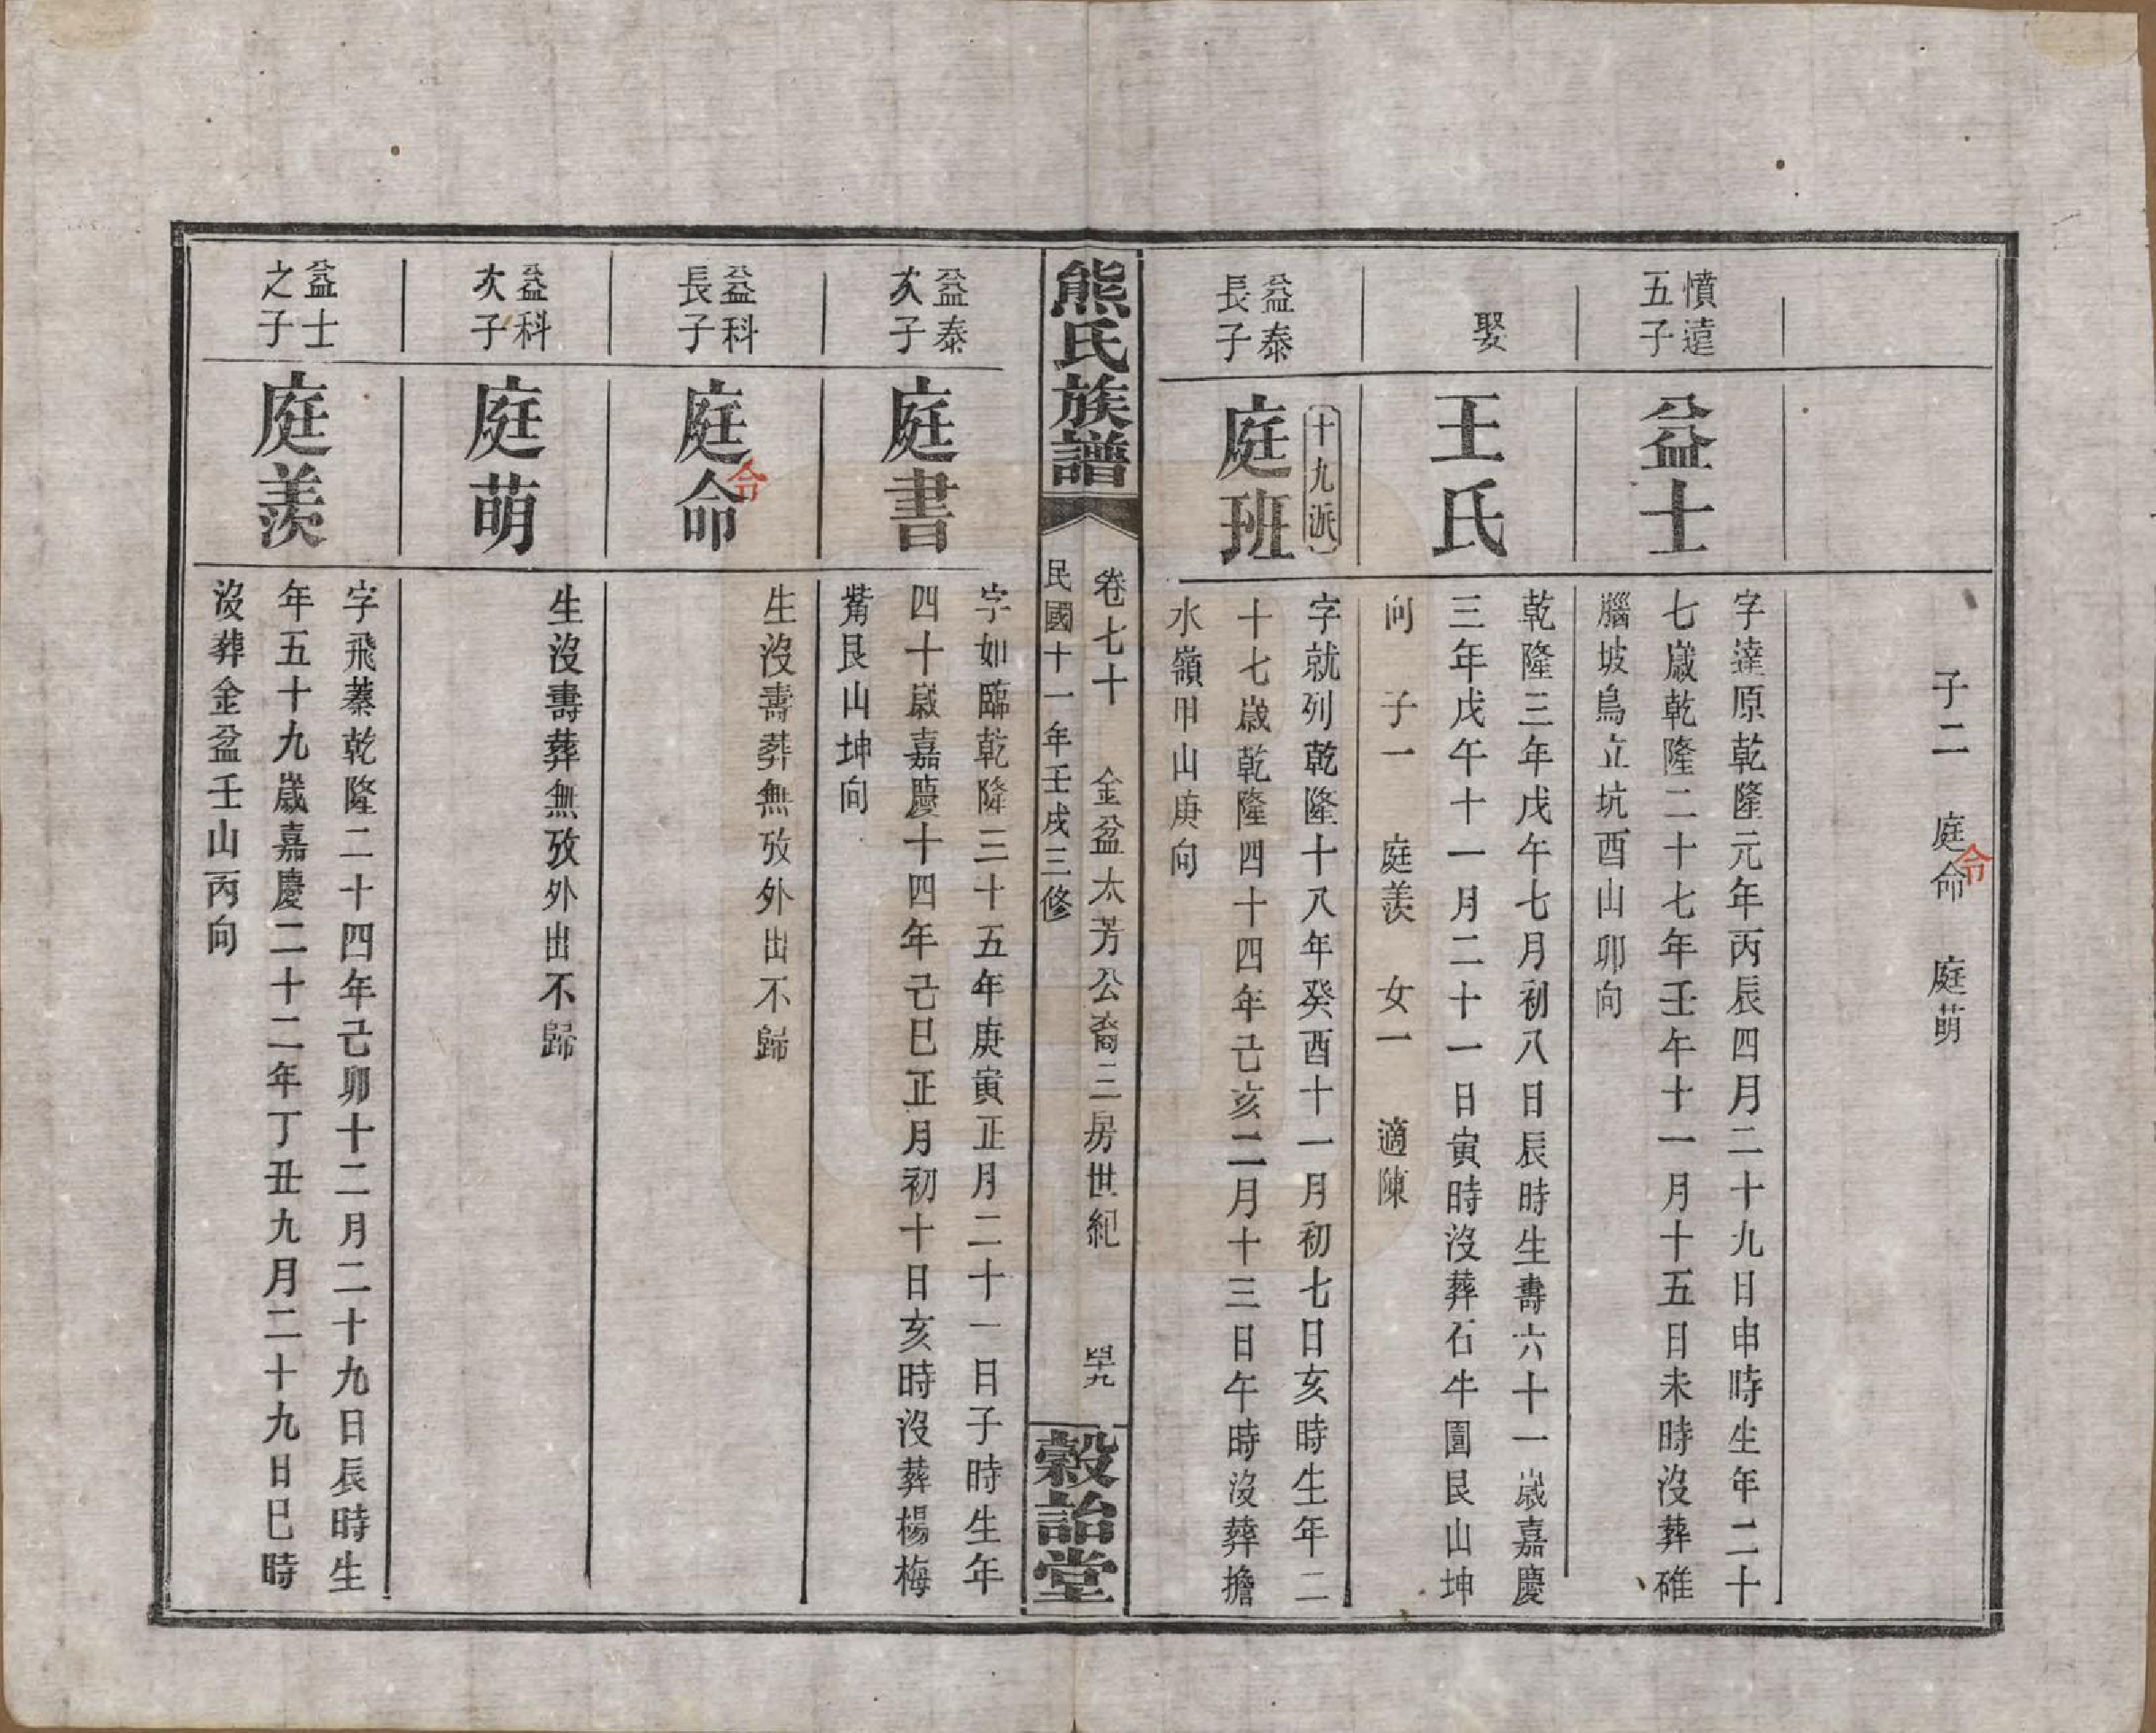 子二　庭命　庭萌
令
憤遠
五子
益士
字達原乾隆元年丙辰四月二十九日申時生年二十
七歲乾隆二十七年壬午十一月十五日未時沒葬碓
腦坡鳥立坑酉山卯向
娶
王氏
乾隆三年戊午七月初八日辰時生壽六十一歲嘉慶
三年戊午十一月二十一日寅時沒葬石牛圍艮山坤
向　子一　庭羨　女一　適陳
益泰
長子
十九派
庭班
字就列乾隆十八年癸酉十一月初七日亥時生年二
十七歲乾隆四十四年己亥二月十三日午時沒葬擔
水嶺甲山庚向
熊氏族譜
卷七十　金盆太芳公裔三房世紀　四十九
民國十一年壬戌三修
穀詒堂
益泰
次子
庭書
字如臨乾隆三十五年庚寅正月二十一日子時生年
四十歲嘉慶十四年己巳正月初十日亥時沒葬楊梅
觜艮山坤向
益科
長子
庭命
令
生沒壽葬無攷外出不歸
益科
次子
庭萌
生沒壽葬無攷外出不歸
益士
之子
庭羨
字飛蓁乾隆二十四年己卯十二月二十九日辰時生
年五十九歲嘉慶二十二年丁丑九月二十九日巳時
沒葬金盆壬山丙向